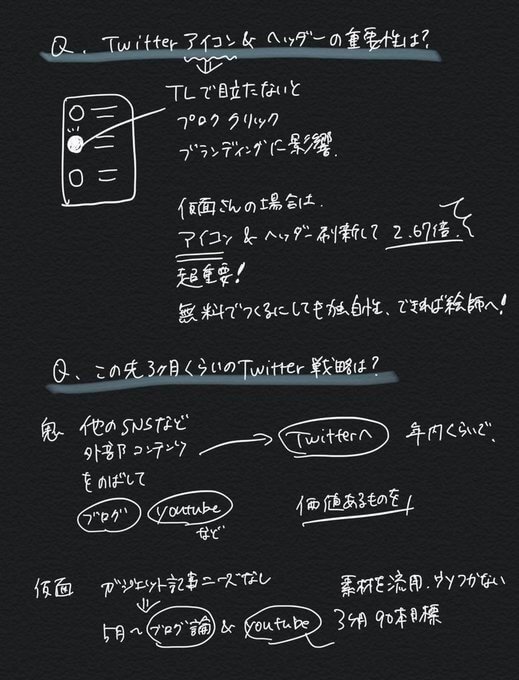 Q. Twitter アイコン & ヘッダーの重要性は?
TLで目立たないと
プロク クリック
ブランディングに影響.
仮面さんの場合は.
アイコン & ヘッダー刷新して 2.67倍.
超重要!
無料でつくるにしても独自性、できれば絵師へ!
Q. この先3ヶ月くらいのTwitter 戦略は?
鬼 他のSNSなど
外部コンテンツ
をのばして
ブログ youtube
など
Twitterへ 年内くらいで.
価値あるものを!
仮面 ガジェット記事ニーズなし
5月〜ブログ論 & youtube
素材を流用. ウソつかない
3ヶ月 90本目標